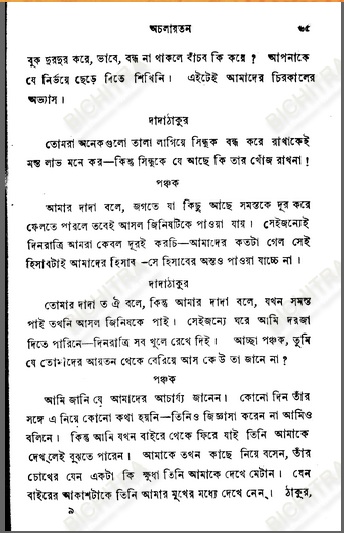 অচলায়তন ৬৫
বুক দুরদুর করে, ভাবে, বন্ধ না থাকলে বাঁচব কি করে ? আপনাকে
যে নির্ভয়ে ছেড়ে দিতে শিখিনি । এইটেই আমাদের চিরকালের
অভ্যাস ।
দাদাঠাকুর
তোমরা অনেকগুলো তালা লাগিয়ে সিন্ধুক বন্ধ করে রাখাকেই
মস্ত লাভ মনে কর—কিন্তু সিন্ধুকে যে আছে কি তার খোঁজ রাখনা !
পঞ্চক
আমার দাদা বলে, জগতে যা কিছু আছে সমস্তকে দূর করে
ফেলতে পারলে তবেই আসল জিনিষটিকে পাওয়া যায় । সেইজন্যেই
দিনরাত্রি আমরা কেবল দূরই করচি—আমাদের কতটা গেল সেই
হিসাবটাই আমাদের হিসাব —সে হিসাবের অন্তও পাওয়া যাচ্চে না ।
দাদাঠাকুর
তোমার দাদা ত ঐ বলে, কিন্তু আমার দাদা বলে, যখন সমস্ত
পাই তখনি আসল জিনিষকে পাই । সেইজন্যে ঘরে আমি দরজা
দিতে পারিনে—দিনরাত্রি সব খুলে রেখে দিই । আচ্ছা পঞ্চক, তুমি
যে তোমাদের আয়তন থেকে বেরিয়ে আস কেউ তা জানে না ?
পঞ্চক
আমি জানি যে আমাদের আচার্য্য জানেন । কোনো দিন তাঁর
সঙ্গে এ নিয়ে কোনো কথা হয়নি—তিনিও জিজ্ঞাসা করেন না আমিও
বলিনে । কিন্তু আমি যখন বাইরে থেকে ফিরে যাই তিনি আমাকে
দেখ্লেই বুঝতে পারেন । আমাকে তখন কাছে নিয়ে বসেন, তাঁর
চোখের যেন একটা কি ক্ষুধা তিনি আমাকে দেখে মেটান । যেন
বাইরের আকাশটাকে তিনি আমার মুখের মধ্যে দেখে নেন । ঠাকুর,
৯